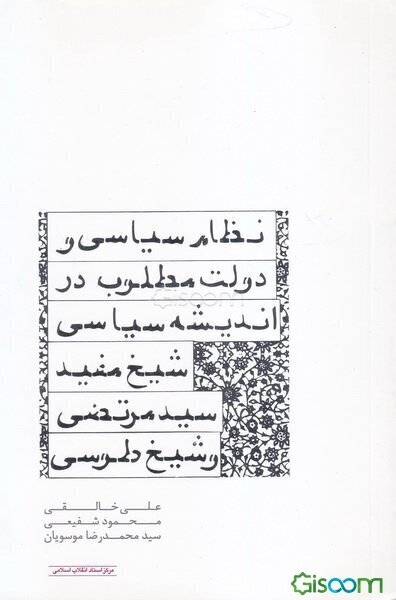 نظام سیاسی و
دولت مطلوب در
اندیشه سیاسی
شیخ مفید
سید مرتضی
و شیخ طوسی
علی خالقی
محمود شفیعی
سید محمدرضا موسویان
مرکز اسناد انقلاب اسلامی
Gisoom
Gisoom
.com